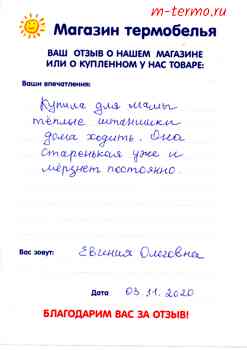 m-termo.ru
Магазин термобелья
ВАШ ОТЗЫВ О НАШЕМ МАГАЗИНЕ
ИЛИ О КУПЛЕННОМ У НАС ТОВАРЕ:
Ваши впечатления:
Купила для мамы
тёплые штанишки
дома ходить. Она
старенькая уже и
мёрзнет постоянно.
Вас зовут: Евгиния Олеговна
Дата 03.11.2020
БЛАГОДАРИМ ВАС ЗА ОТЗЫВ!